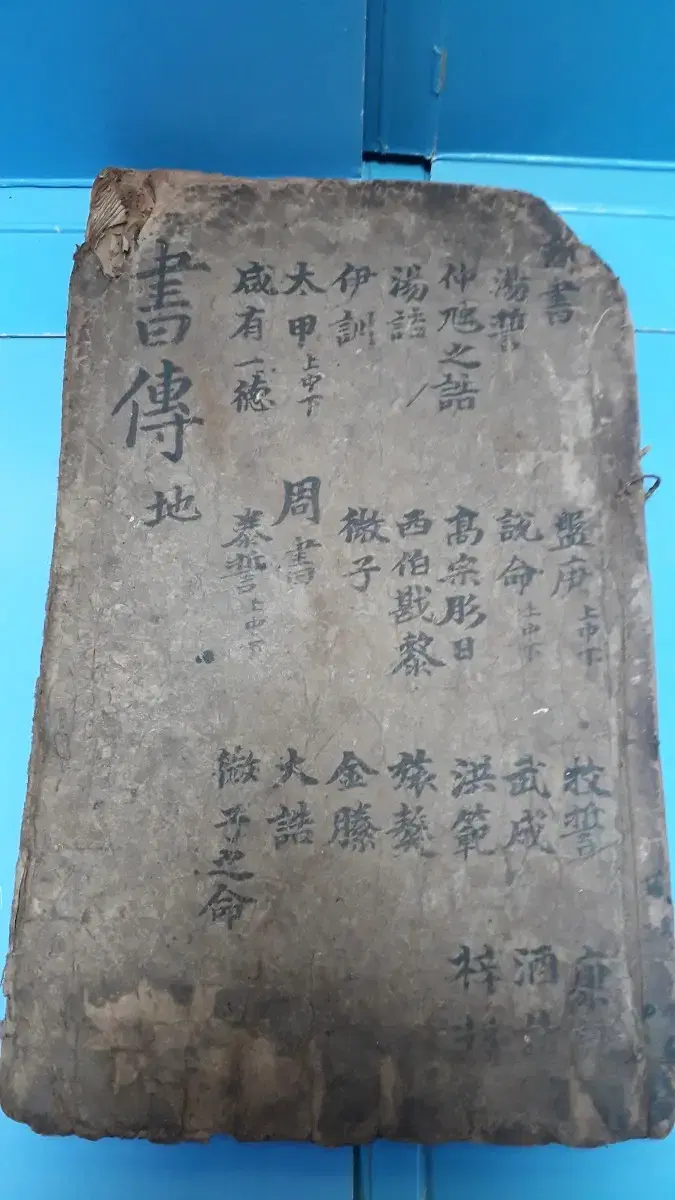 書傳 地
商書
湯誓
仲虺之誥
湯誥
伊訓
太甲 上中下
咸有一德
盤庚 上中下
說命 上中下
高宗肜日
西伯戡黎
微子
周書
泰誓 上中下
牧誓
武成
洪範
旅獒
金縢
大誥
微子之命
康
酒
梓材